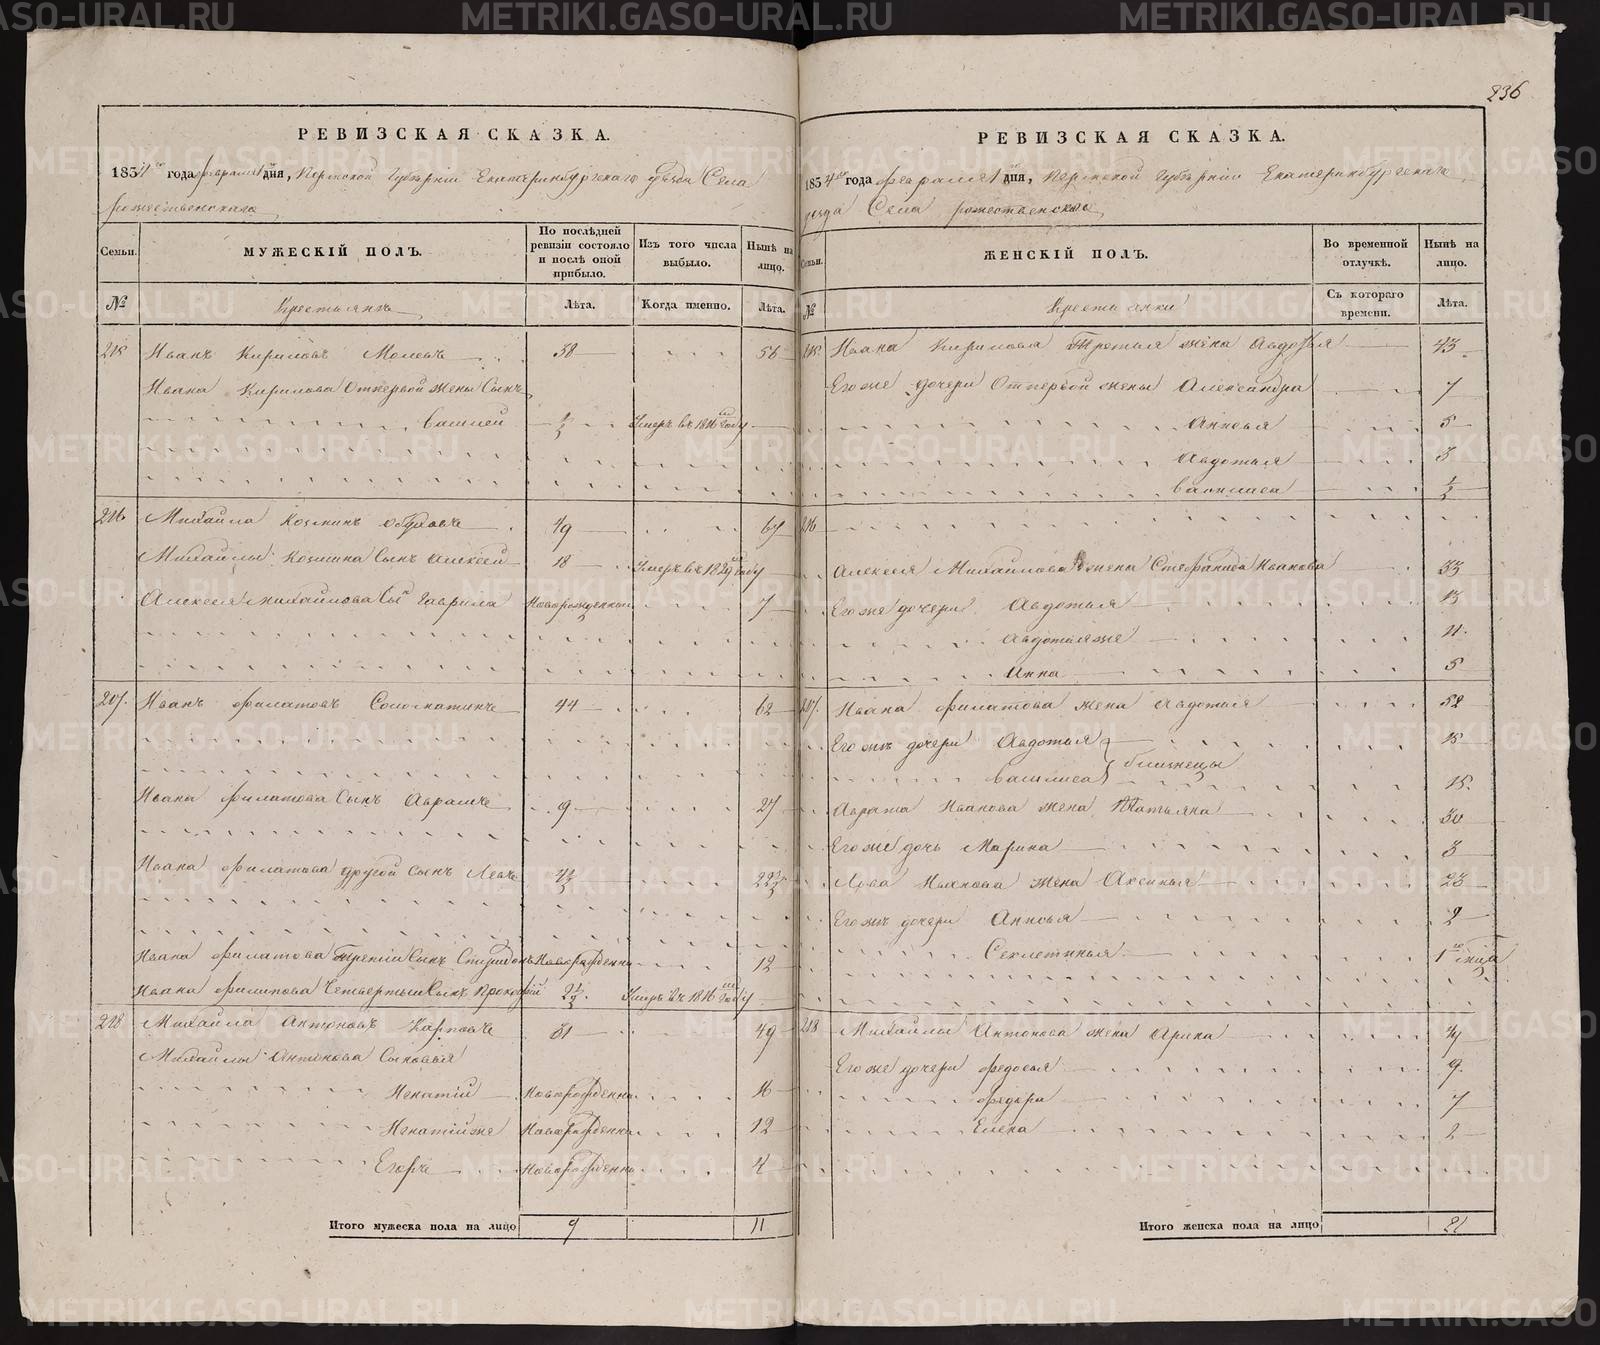 236
РЕВИЗСКАЯ СКАЗКА.
1834го года февраля 1й дня, Пермской Губерніи Екатеринбургскаго уезда Села
рожественскаго
Семьи. МУЖЕСКІЙ ПОЛЪ. По послѣдней ревизіи состояло и послѣ оной прибыло. Изъ того числа выбыло. Нынѣ на лицо.
№ Крестьянъ Лѣта. Когда именно. Лѣта.
215 Иванъ Кириловъ 38 56
Ивана Кирилова Отпервой жены Сынъ
Василей 1/2 Умеръ въ 1816 году
216 Михаила Козминъ 49 67
Михайлы Козмина Сынъ Алексей 18 Умеръ въ 1829 году
Алексея Михайлова Сы Гаврила Новорожденный 7
217. Иванъ Филатовъ 44 62
Ивана Филатова Сынъ Аврамъ 9 27
Ивана Филатова другой сынъ Левъ 4 1/2 22 1/2
Ивана Филатова Третій Сынъ Спиридонъ Новорожденны 12
Ивана Филипова Четвертый Сынъ Прокофій 2 1/2. Умеръ въ 1816 году
218 Михайла Антоновъ Карповъ 31 49
Михайлы Антонова Сыновья
Игнатій Новорожденны 16
Игнатій же Новорожденны 12
Егоръ Новорожденны 4
Итого мужеска пола на лицо 9 11
РЕВИЗСКАЯ СКАЗКА.
1834го года февраля 1й дня, Пермской Губерніи Екатеринбургскаго
уезда Села рожественскаго
Семьи. ЖЕНСКІЙ ПОЛЪ. Во временной отлучкѣ. Нынѣ на лицо.
№ Крестьянки Съ котораго времени. Лѣта.
215. Ивана Кирилова Третья жена Авдотья 43
Его же дочери Отпервой жены Александра 7
Анисья 5
Авдотья 3
Василиса 1/2
216
Алексея Михайлова жена Стефанида Иванова 33
Его же дочери Авдотья 13
Авдотья же 11.
Анна 5
217. Ивана Филатова жена Авдотья 52
Его же дочери Авдотья 15
Василиса близнецы 15.
Аврама Иванова жена Татьяна 30
Его же дочь Марина 3
Лва Иванова жена Аксинья 23
Его же дочери Анисья 2
Секлетинья 1
218 Михайлы Антонова жена Арина 41
Его же дочери Федосья 9.
7
Елена 2
Итого женска пола на лицо 21
METRIKI.GASO-URAL.RU